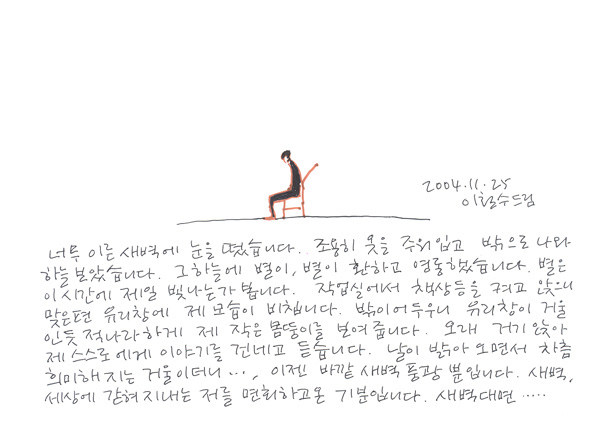 2004.11.25
이철수드림
너무 이른 새벽에 눈을 떴습니다. 조용히 옷을 주워 입고 밖으로 나와
하늘 보았습니다. 그 하늘에 별이, 별이 환하고 영롱했습니다. 별은
이 시간에 제일 빛나는가 봅니다. 작업실에서 책상등을 켜고 앉으니
맞은편 유리창에 제 모습이 비칩니다. 밖이 어두우니 유리창이 거울
인듯 적나라하게 제 작은 몸뚱이를 보여줍니다. 오래 거기 앉아
제 스스로에게 이야기를 건네고 듣습니다. 날이 밝아 오면서 차츰
희미해 지는 거울이더니…, 이젠 바깥 새벽 풍광 뿐입니다. 새벽,
세상에 갇혀 지내는 저를 면회하고 온 기분입니다. 새벽대면 …..